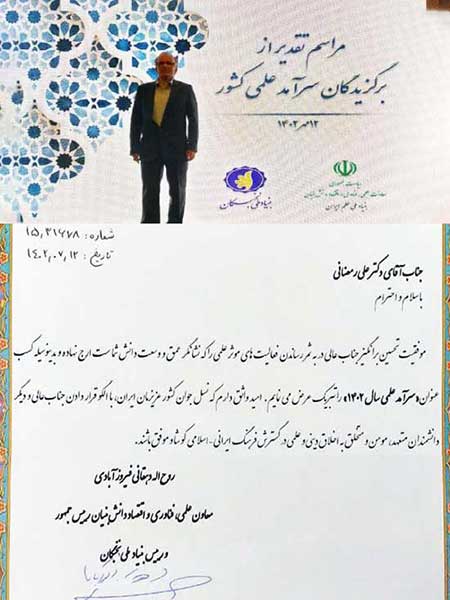 مراسم تقدیر از
برگزیدگان سرآمد علمی کشور
۱۲ مهر ۱۴۰۲
ریاست جمهوری
بنیاد ملی علم ایران
بنیاد ملی نخبگان
شماره: ۱۵,۳۱۶۷۸
تاریخ: ۱۴۰۲,۰۷,۱۲
جناب آقای دکتر علی رمضانی
با سلام و احترام
موفقیت تحسین برانگیز جناب عالی در به ثمر رساندن فعالیت های موثر علمی را که نشانگر عمق و وسعت دانش شماست ارج نهاده و بدینوسیله کسب
عنوان «سرآمد علمی سال ۱۴۰۲» را تبریک عرض می نمایم. امید واثق دارم که نسل جوان کشور عزیزمان ایران، با الگو قرار دادن جناب عالی و دیگر
دانشمندان متعهد، مومن و متخلق به اخلاق دینی و علمی در گسترش فرهنگ ایرانی-اسلامی کوشا و موفق باشند.
روح اله دهقانی فیروزآبادی
معاون علمی، فناوری و اقتصاد دانش بنیان رییس جمهور
و رییس بنیاد ملی نخبگان